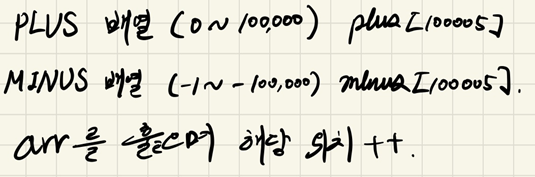 PLUS 배열 (0 ~ 100,000) plus [100005]
MINUS 배열 (-1 ~ -100,000) minus [100005].
arr를 훑으며 해당 위치 ++.